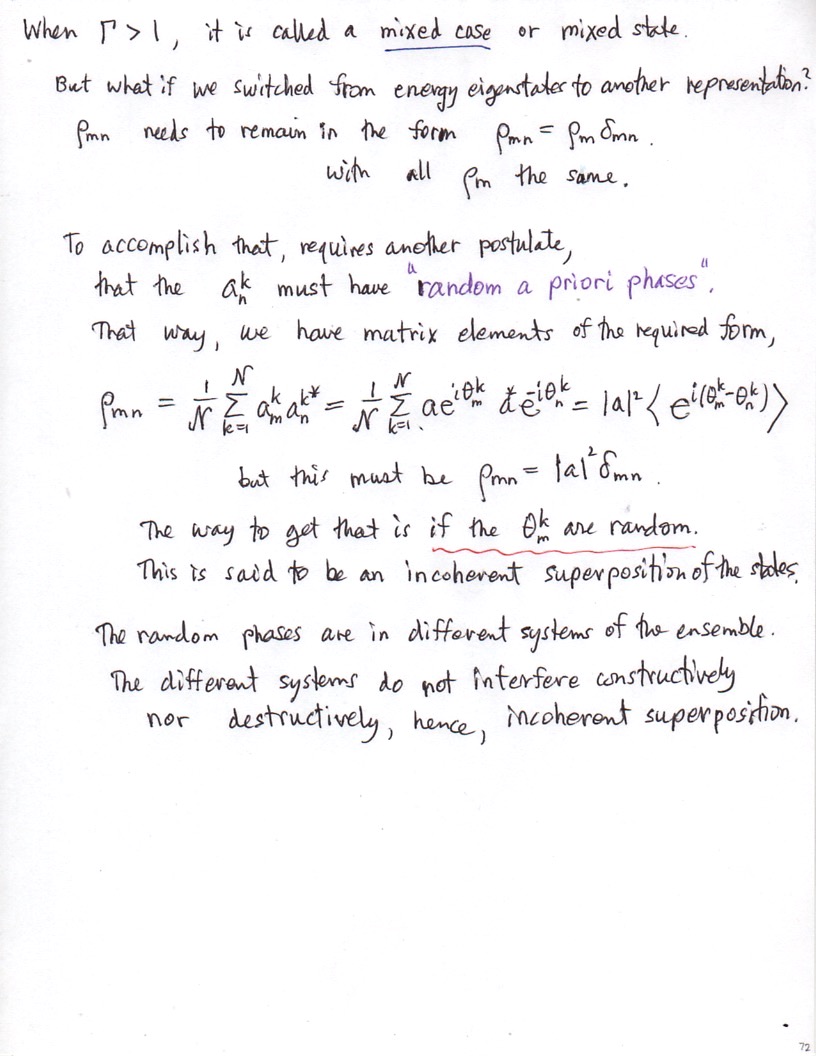 When Γ > 1, it is called a mixed case or mixed state.
But what if we switched from energy eigenstates to another representation?
ρmn needs to remain in the form ρmn = ρm δmn.
with all ρm the same.
To accomplish that, requires another postulate,
that the aₙᵏ must have "random a priori phases".
That way, we have matrix elements of the required form,
ρmn = 1/𝒩 Σ_{k=1}^{𝒩} a_m^k a_n^{k*} = 1/𝒩 Σ_{k=1}^{𝒩} a e^{iθ_m^k} a* e^{-iθ_n^k} = |a|² ⟨ e^{i(θ_m^k - θ_n^k)} ⟩
but this must be ρmn = |a|² δmn.
The way to get that is if the θ_m^k are random.
This is said to be an incoherent superposition of the states.
The random phases are in different systems of the ensemble.
The different systems do not interfere constructively
nor destructively, hence, incoherent superposition.
72